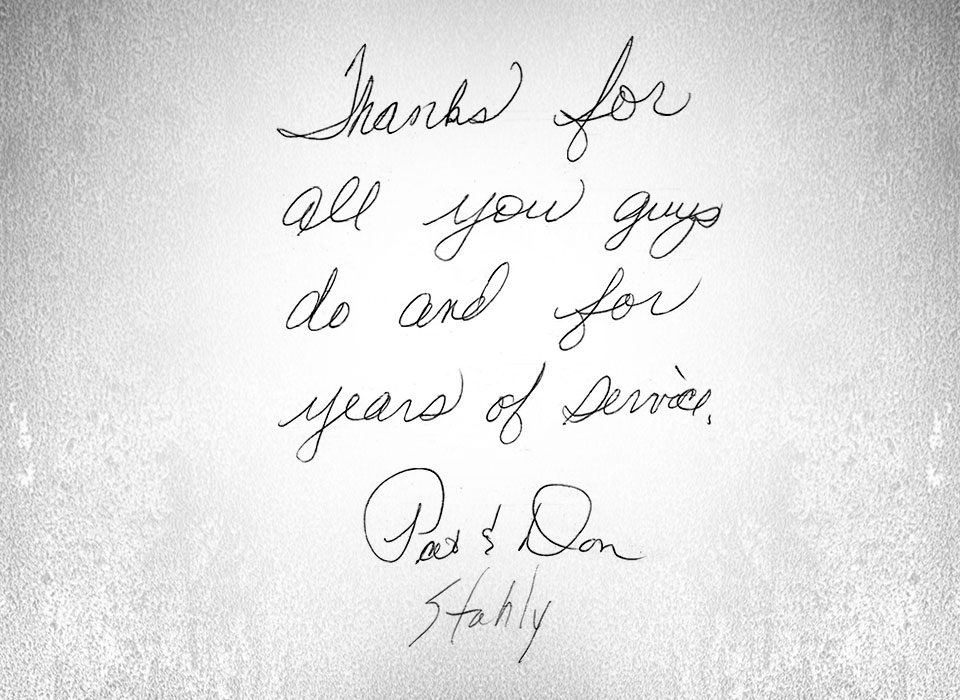 Thanks for
all you guys
do and for
years of service.
Pat & Don
Stahly